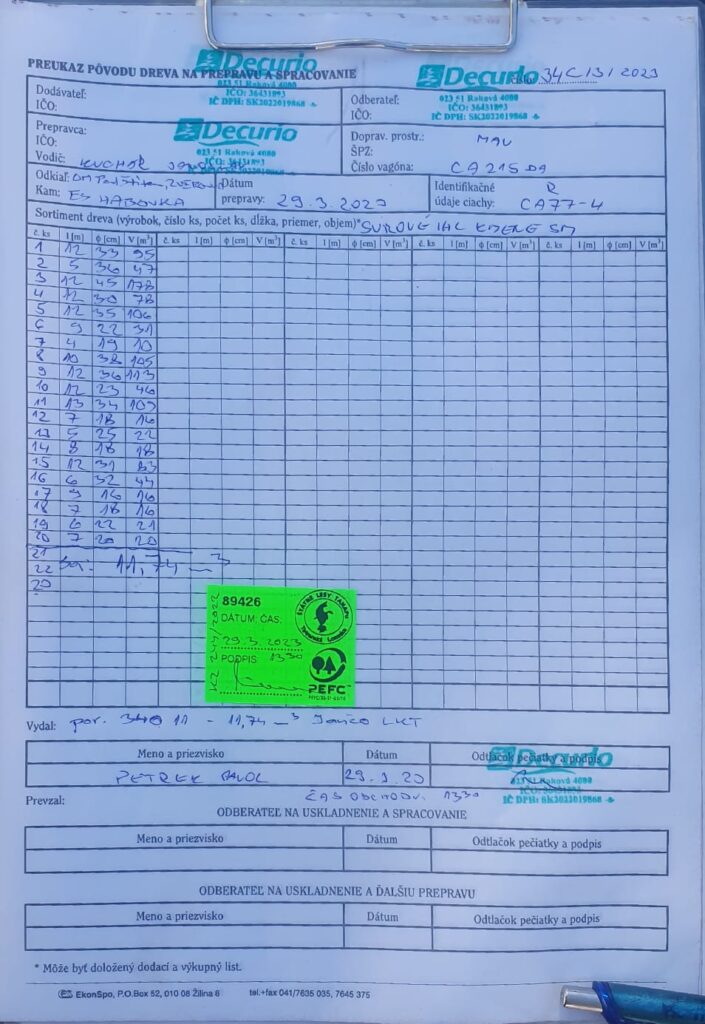 PREUKAZ PÔVODU DREVA NA PREPRAVU A SPRACOVANIE
Decurio
023 51 Raková 4080
IČO: 36431893
IČ DPH: SK2022019868
Decurio
34C/3/2023
023 51 Raková 4080
IČO: 36431893
IČ DPH: SK2022019868
Dodávateľ:
IČO:
Odberateľ:
IČO:
Prepravca:
IČO:
Decurio
023 51 Raková 4080
Vodič: KUCHÁR
Doprav. prostr.: MAN
ŠPZ:
Číslo vagóna: CA215DA
Odkiaľ: OM
Kam: ES HABOVKA
Dátum
prepravy: 29.3.2023
Identifikačné R
údaje ciachy: CA77-4
Sortiment dreva (výrobok, číslo ks, počet ks, dĺžka, priemer, objem)* SUROVÉ IHL KMENE SM
č. ks l [m] φ [cm] V [m³] č. ks l [m] φ [cm] V [m³] č. ks l [m] φ [cm] V [m³] č. ks l [m] φ [cm] V [m³] č. ks l [m] φ [cm] V [m³]
1 12 33 95
2 5 36 47
3 12 45 178
4 12 30 78
5 12 35 106
6 9 22 31
7 4 19 10
8 10 38 105
9 12 36 113
10 12 23 46
11 13 34 109
12 7 18 16
13 5 25 22
14 8 18 18
15 12 31 83
16 6 32 44
17 9 16 16
18 7 18 16
19 6 22 21
20 7 20 20
21
22 11,74 m3
23
89426
DÁTUM, ČAS:
29.3.2023
PODPIS 1330
ŠTÁTNE LESY TANAPU
Tatranská Lomnica
PEFC
Vydal: por. 340 11 - 11,74 m3 Janico LKT
Meno a priezvisko Dátum Odtlačok pečiatky a podpis
PETREK PAVOL 29.3.23
Decurio
023 51 Raková 4080
IČO: 36431893
IČ DPH: SK2022019868
Prevzal: ČAS ODCHODU. 1330
ODBERATEĽ NA USKLADNENIE A SPRACOVANIE
Meno a priezvisko Dátum Odtlačok pečiatky a podpis
ODBERATEĽ NA USKLADNENIE A ĎALŠIU PREPRAVU
Meno a priezvisko Dátum Odtlačok pečiatky a podpis
* Môže byť doložený dodací a výkupný list.
EkonSpo, P.O.Box 52, 010 08 Žilina 8 tel.+fax 041/7635 035, 7645 375